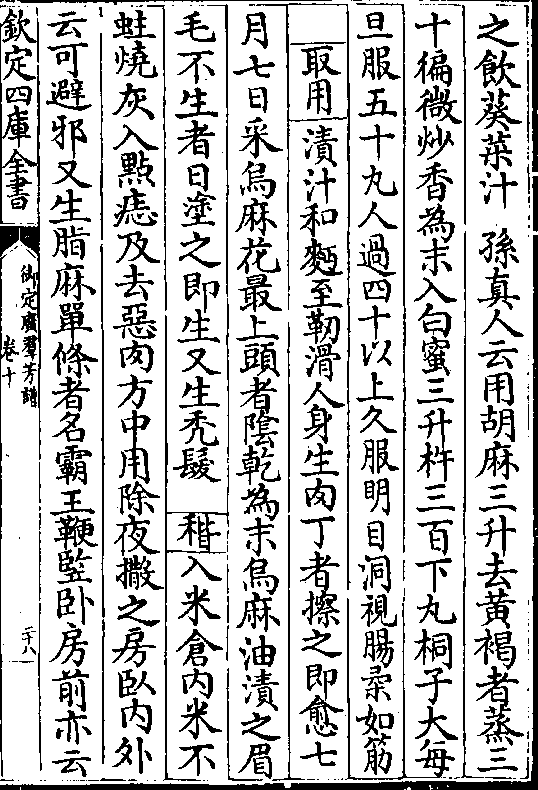 之飲葵菜汁　孫真人云用胡麻三升去黄褐者蒸三
十徧微炒香為末入白蜜三升杵三百下丸桐子大每
旦服五十丸人過四十以上久服明目洞視腸柔如筋
取用　漬汁和麪至韌滑人身生肉丁者擦之即愈七
月七日采烏麻花最上頭者陰乾為末烏麻油漬之眉
毛不生者日塗之即生又生禿髮　稭　入米倉內米不
蛀燒灰入點痣及去惡肉方中用除夜撒之房臥內外
云可避邪又生脂麻單條者名霸王鞭竪卧房前亦云
欽定四庫全書
御定廣羣芳譜
卷十
二十八